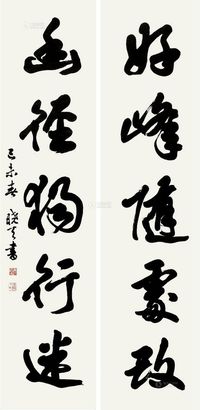 好峰隨處改
幽徑獨行迷
己未春 曉春書